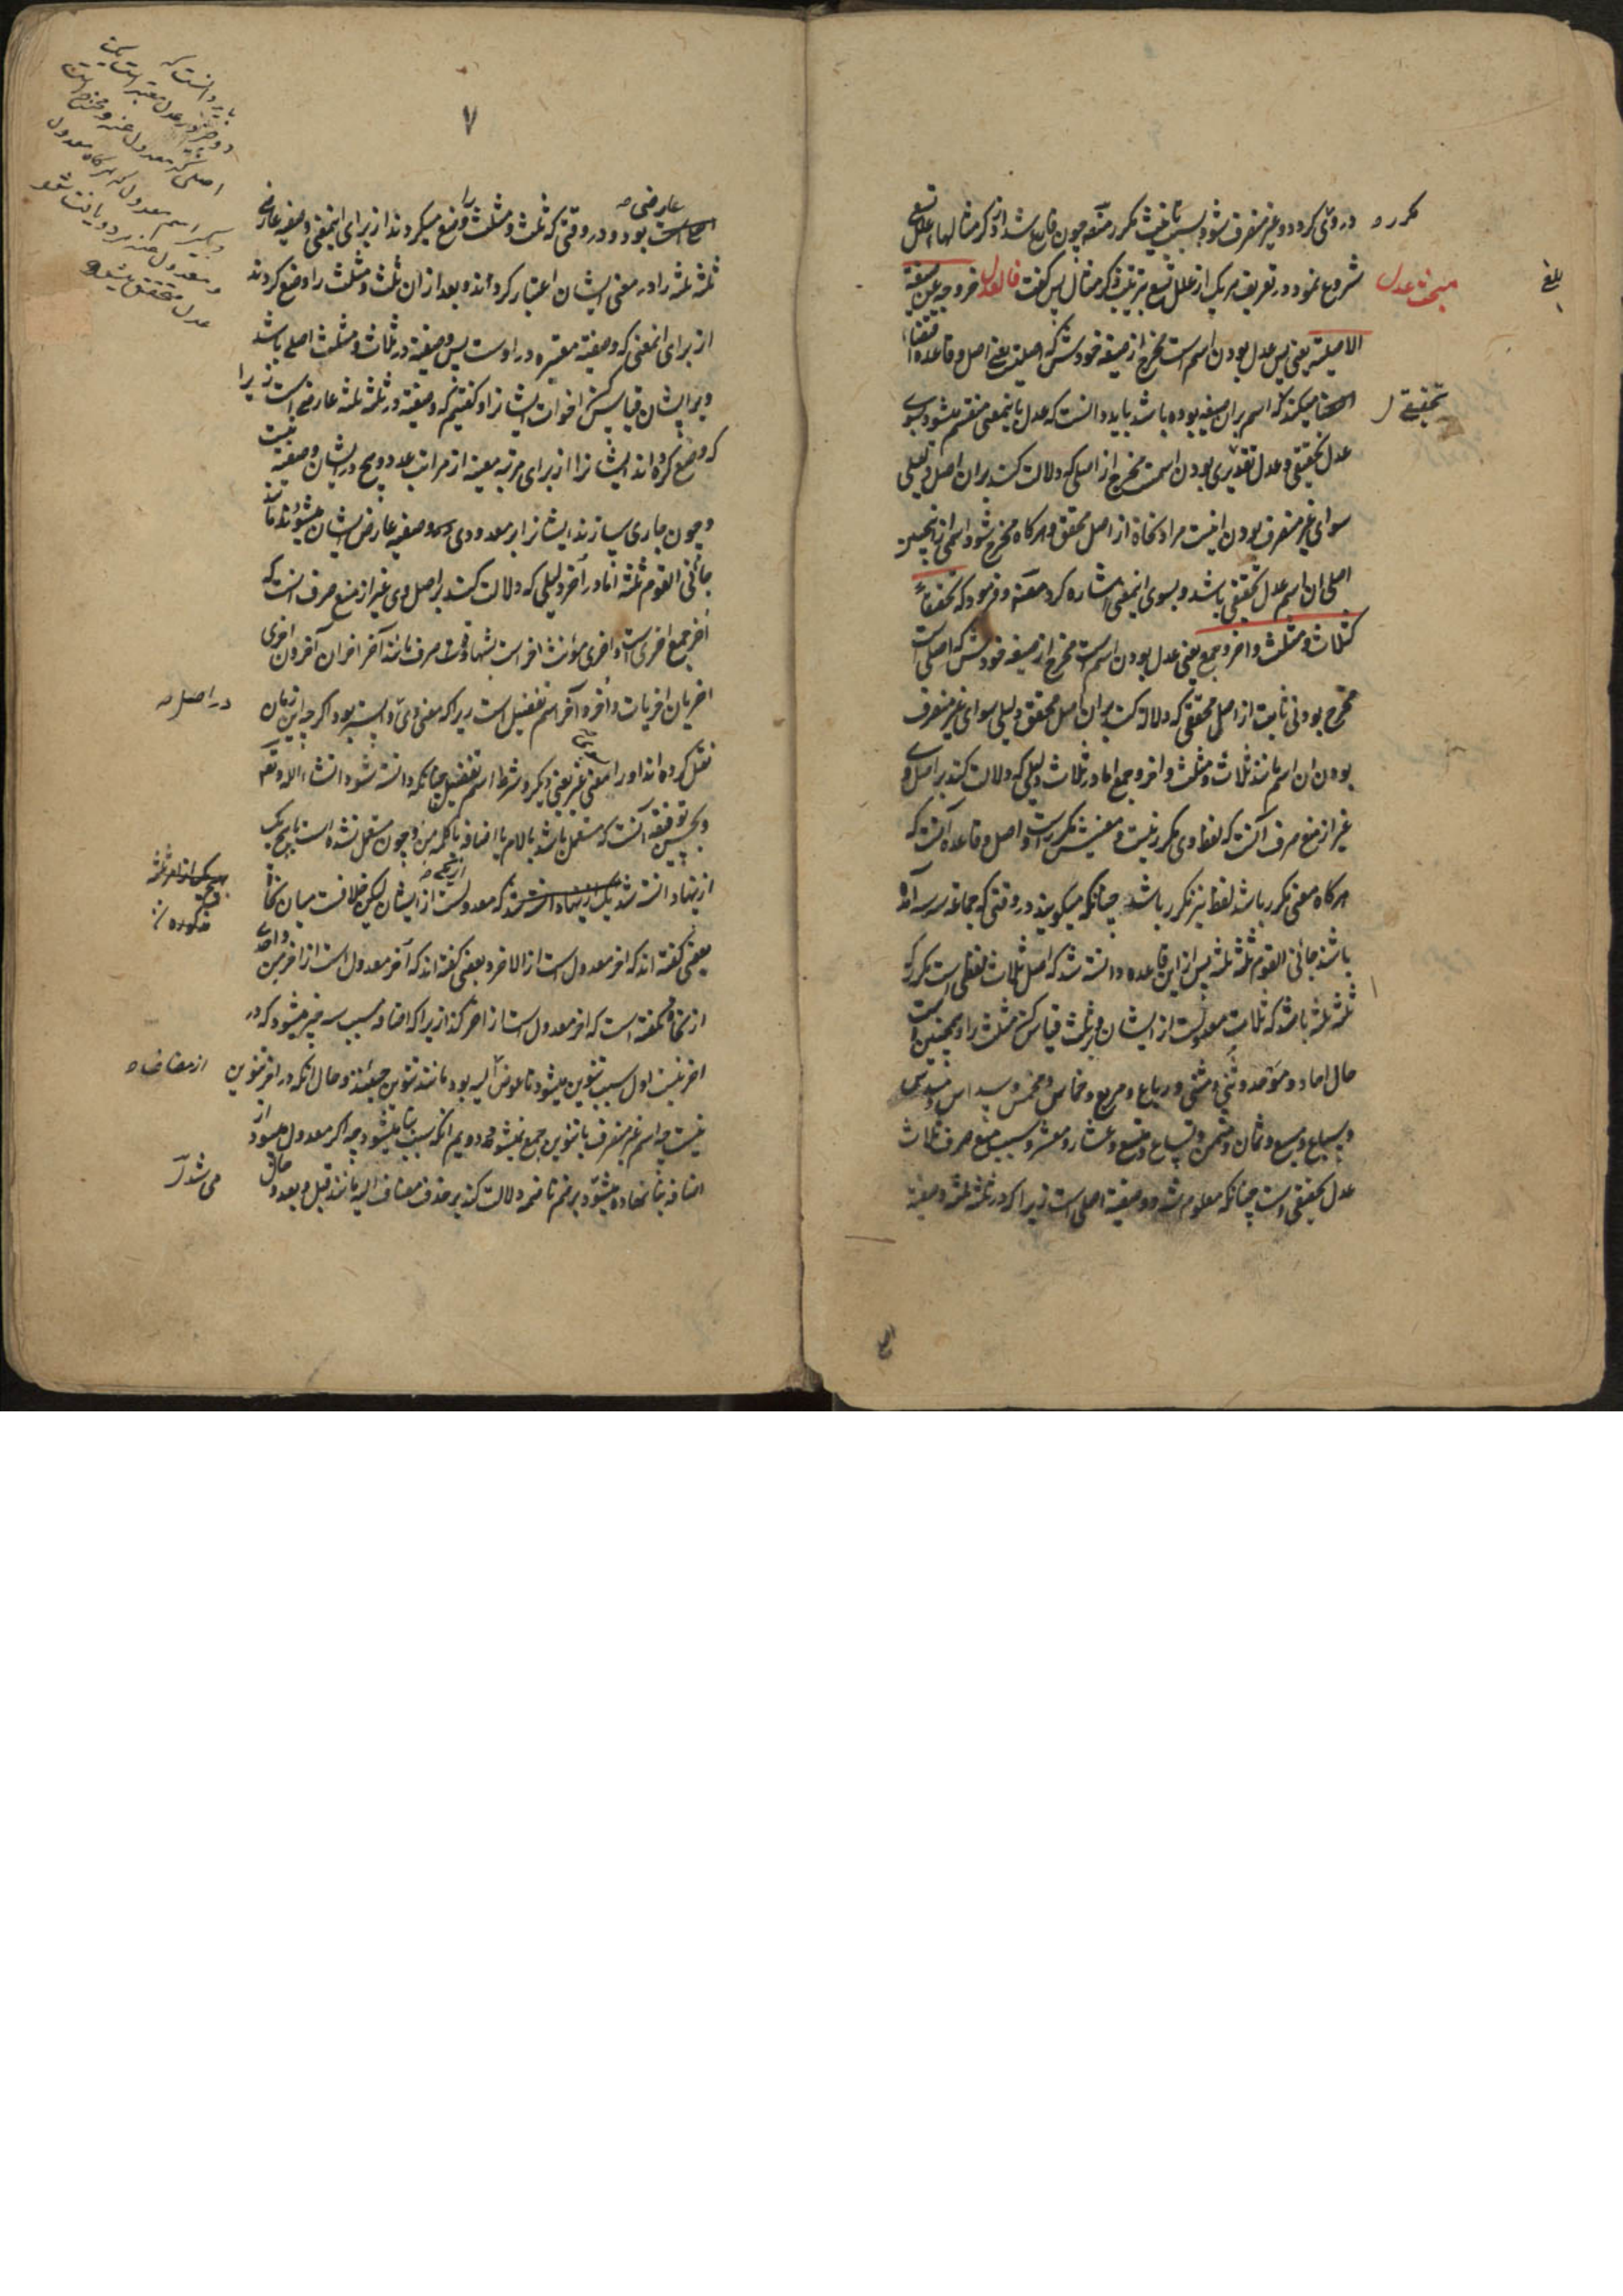 در وی کردد و غیر منصرف شود بسبب تانیث مکرر مصنف چون فارغ شد از ذکر مثالها علل تسع
مکرر
شروع نمود در تعریف هر یک از علل تسع بترتیب ذکر مثال پس گفت فالعدل خروجه عن صیغته
مبحث عدل
بلغ
الاصلیة یعنی پس عدل بودن اسم است مخرج از صیغه خودش که اصلیت یعنی اصل و قاعده اقتضاء
میکند که اسم بران صیغه بوده باشد باید دانست که عدل باینمعنی منقسم میشود بسوی
تحقیقی
عدل تحقیقی و عدل تقدیری بودن اسمست مخرج از اصلی که دلالت کند بران اصل دلیلی
سوای غیر منصرف بودن اینست مراد نحاة از اصل محقق و هرکاه مخرج شود اسمی از اینچنین
اصلی ان اسم عدل تحقیقی باشد و بسوی اینمعنی اشاره کرد مصنف و فرمود که تحقیقا
کثلاث و مثلث و اخر و جمع یعنی عدل بودن اسم است مخرج از صیغه خودش که اصلی است
مخرج بودنی ثابت از اصلی محققی که دلالة کند بران اصل محقق دلیلی سوای غیر منصرف
بودن ان اسم مانند ثلاث و مثلث و اخر و جمع اما در ثلاث دلیلی که دلالت کند بر اصل وی
غیر از منع صرف آنست که لفظ وی مکرر نیست و معنیش مکررست و اصل و قاعده آنست که
هرکاه معنی مکرر باشد لفظ نیز مکرر باشد چنانکه میکویند در وقتی که جماعة سه سه آمده
باشند جائنی القوم ثلثة ثلثة پس از این قاعده دانسته شد که اصل ثلاث لفظی است مکرر که
ثلثة ثلثة باشد که ثلاث معدولست از ایشان و بر ثلث قیاس کن مثلث را و همچنین است
حال احاد و موحد و ثنی و مثنی و رباع و مربع و خماس و مخمس و سداس و مسدس
و سباع و مسبع و ثمان و مثمن و تساع و متسع و عشار و معشر و سبب منع صرف ثلاث
عدل تحقیقی است چنانکه معلوم شد و وصفیة اصلی است زیرا که در ثلثة ثلثة وصفیة
۷
عارضی
بود و در وقتی که ثلث و مثلث را وضع میکردند از برای اینمعنی وصفیة عارضی
ثلثة ثلثة را در معنی ایشان اعتبار کردند و بعد از ان ثلث و مثلث را وضع کردند
از برای انمعنی که وصفیة معتبره در اوست پس وصفیة در ثلاث و مثلث اصلی باشد
و بر ایشان قیاس کن اخوات ایشانرا و کفتیم که وصفیة در ثلثة ثلثة عارضی است زیرا
که وضع کرده اند ایشانرا از برای مرتبه معینه از مراتب عدد و هیچ در ایشان وصفیة نیست
و چون جاری سازند ایشانرا بر معدودی وصفیة عارض ایشان میشود مانند
جائنی القوم ثلثة اما در آخر دلیلی که دلالت کند بر اصل وی غیر از منع صرف انست که
اخر جمع اخری است و اخری مؤنث اخر است بشهادت صرف مانند آخر اخران آخرون اخری
اخریان اخریات و اخر و آخر اسم تفضیل است زیرا که معنی وی پس تر بود اکرچه این زمان
در اصل
نقل کرده اند او را بمعنی غیر یعنی دیکر و شرط اسم تفضیل چنانکه دانسته شود انشاء الله تعالی
آنست که مستعمل باشد بالام یا اضافه یا کلمه من و چون مستعمل نشده است بهیچ یک
ازینها دانسته شد که معدولست از ایشان لیکن خلافست میان نحاة
بعضی کفته اند که اخر معدول است از الاخر و بعضی کفته اند که آخر معدول است از اخر من
از نحاة نکفته است که اخر معدول است از اخر کذا زیرا که اضافه سبب سه چیز میشود که در
اخر نیست اول سبب تنوین میشود تا عوض مضاف الیه بود مانند تنوین حینئذ و حال آنکه در اخر تنوین
از مضاف
نیست چه اسم غیر منصرف با تنوین جمع نمیشود دویم آنکه سبب بنا میشود چه اکر معدول میبود از
اضافه بنا نهاده میشود بر ضم تا ضمه دلالت کند بر حذف مضاف الیه مانند قبل و بعد و حال
می شد
باید دانست که
دو چیز در عدل معتبر است یکی
اصلی که معدول عنه و مخرج است
دیگر اسم معدول که هرگاه معدول
و معدول عنه هر دو یافت شود
عدل متحقق میشود